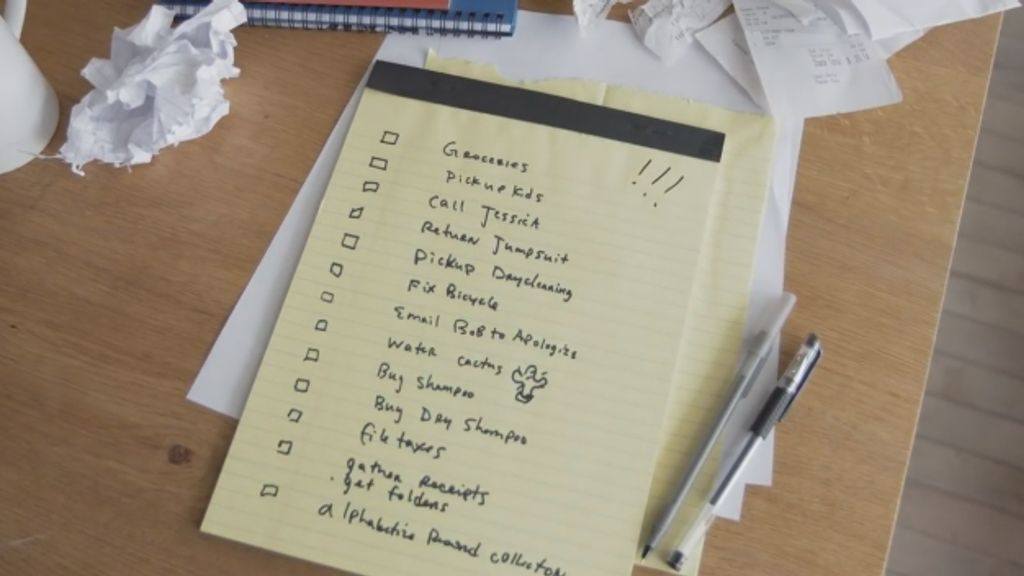 !!!
Groceries
Pickup Kids
Call Jessica
Return Jumpsuit
Pickup Drycleaning
Fix Bicycle
Email Bob to Apologize
Water cactus
Buy Shampoo
Buy Dry Shampoo
file taxes
gather Receipts
· get folders
alphabetize Record collection